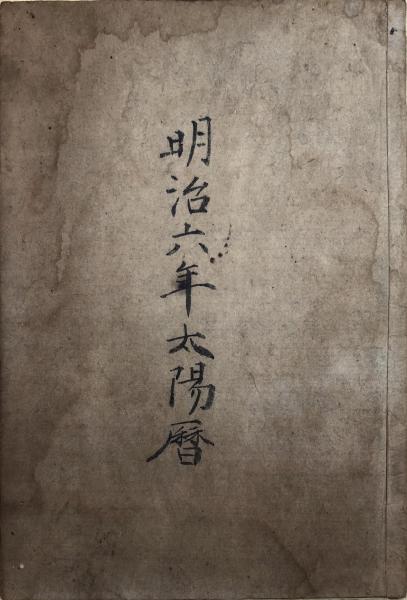 明治六年太陽暦